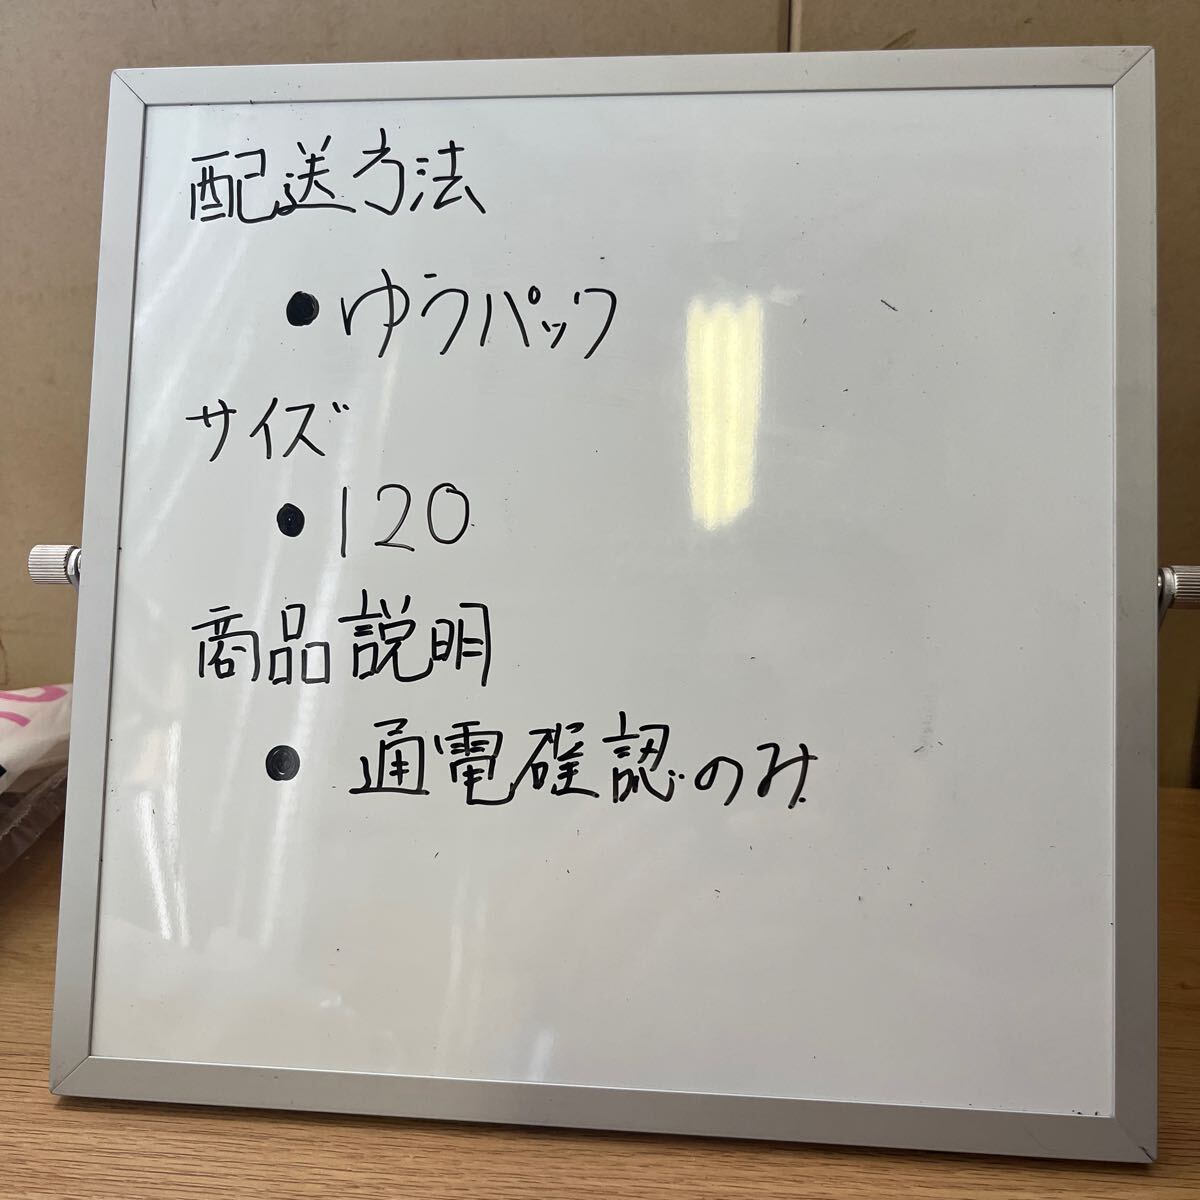 配送方法
• ゆうパック
サイズ
• 120
商品説明
• 通電確認のみ